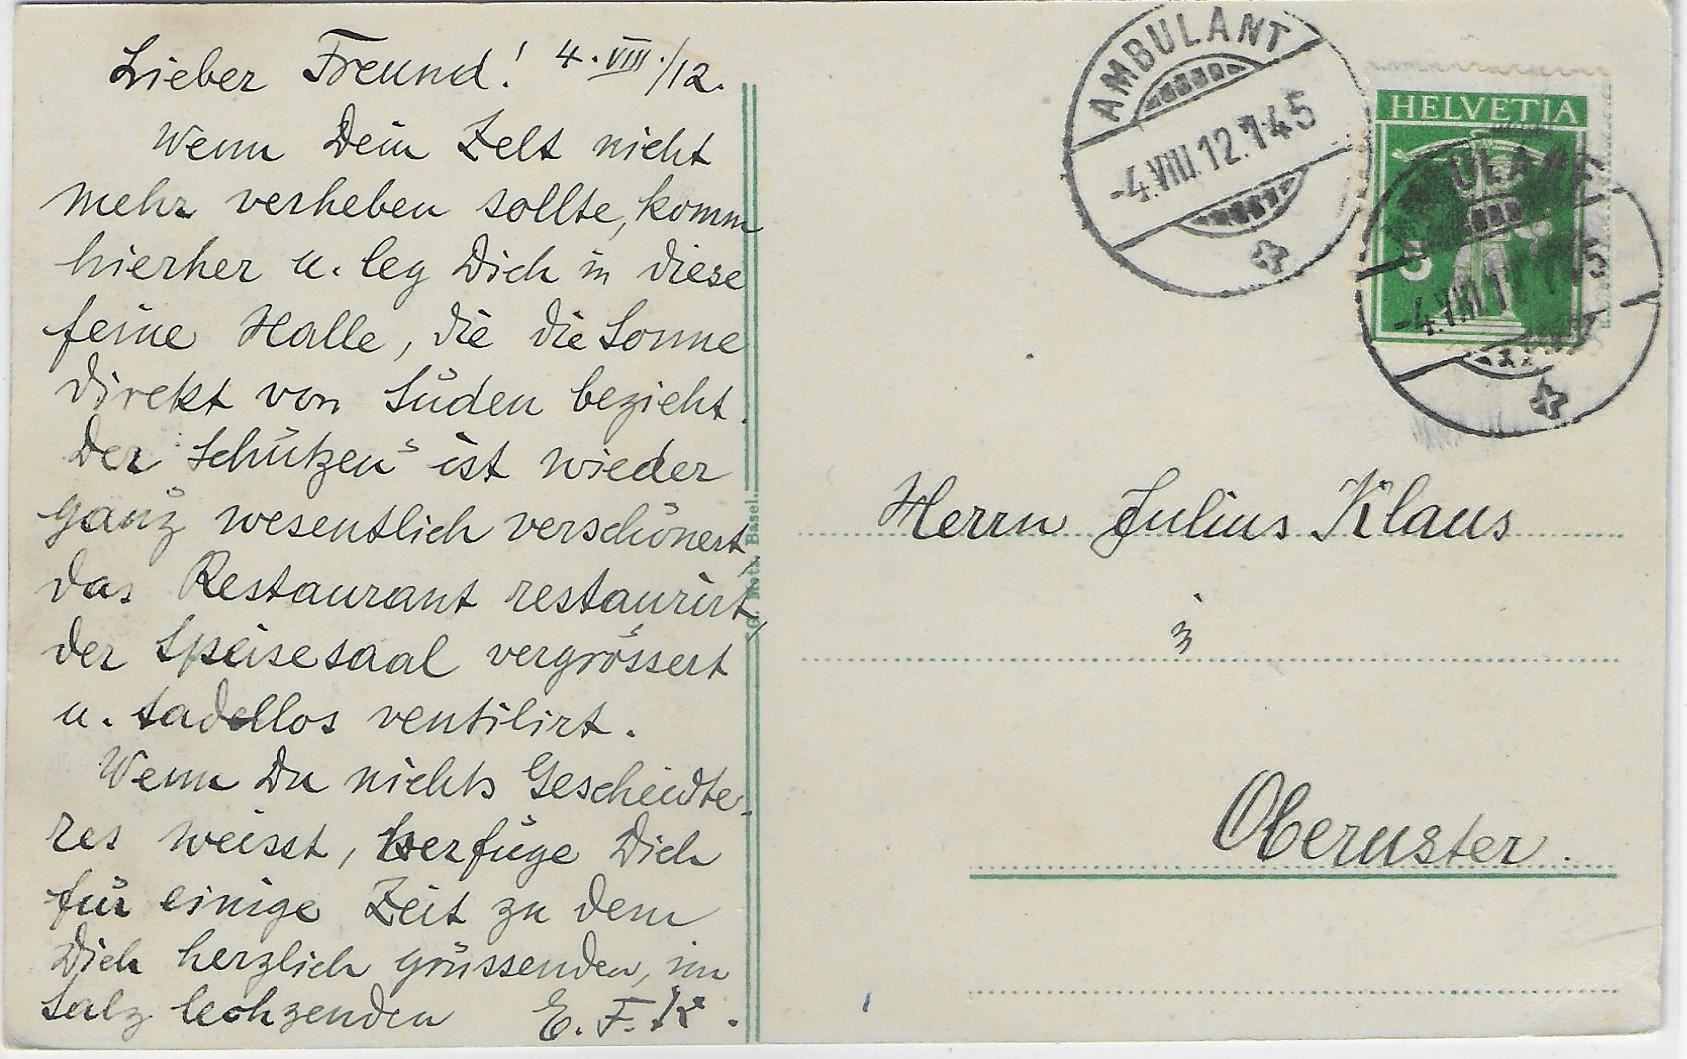 Lieber Freund! 4. VIII./12.
Wenn Dein Zelt nicht
mehr verheben sollte, komm
hierher u. leg Dich in diese
feine Halle, die die Sonne
direkt von Süden bezieht.
Der "Schützen" ist wieder
ganz wesentlich verschönert,
das Restaurant restaurirt,
der Speisesaal vergrössert
u. tadellos ventilirt.
Wenn Du nichts Gescheidte-
res weisst, verfüge Dich
für einige Zeit zu dem
Dich herzlich grüssenden, im
Salz lechzenden E. F. K.
G. Metz, Basel.
AMBULANT
-4.VIII.12.
HELVETIA
5
-4.VIII.12
Herrn Julius Klaus
z
Oberuster.